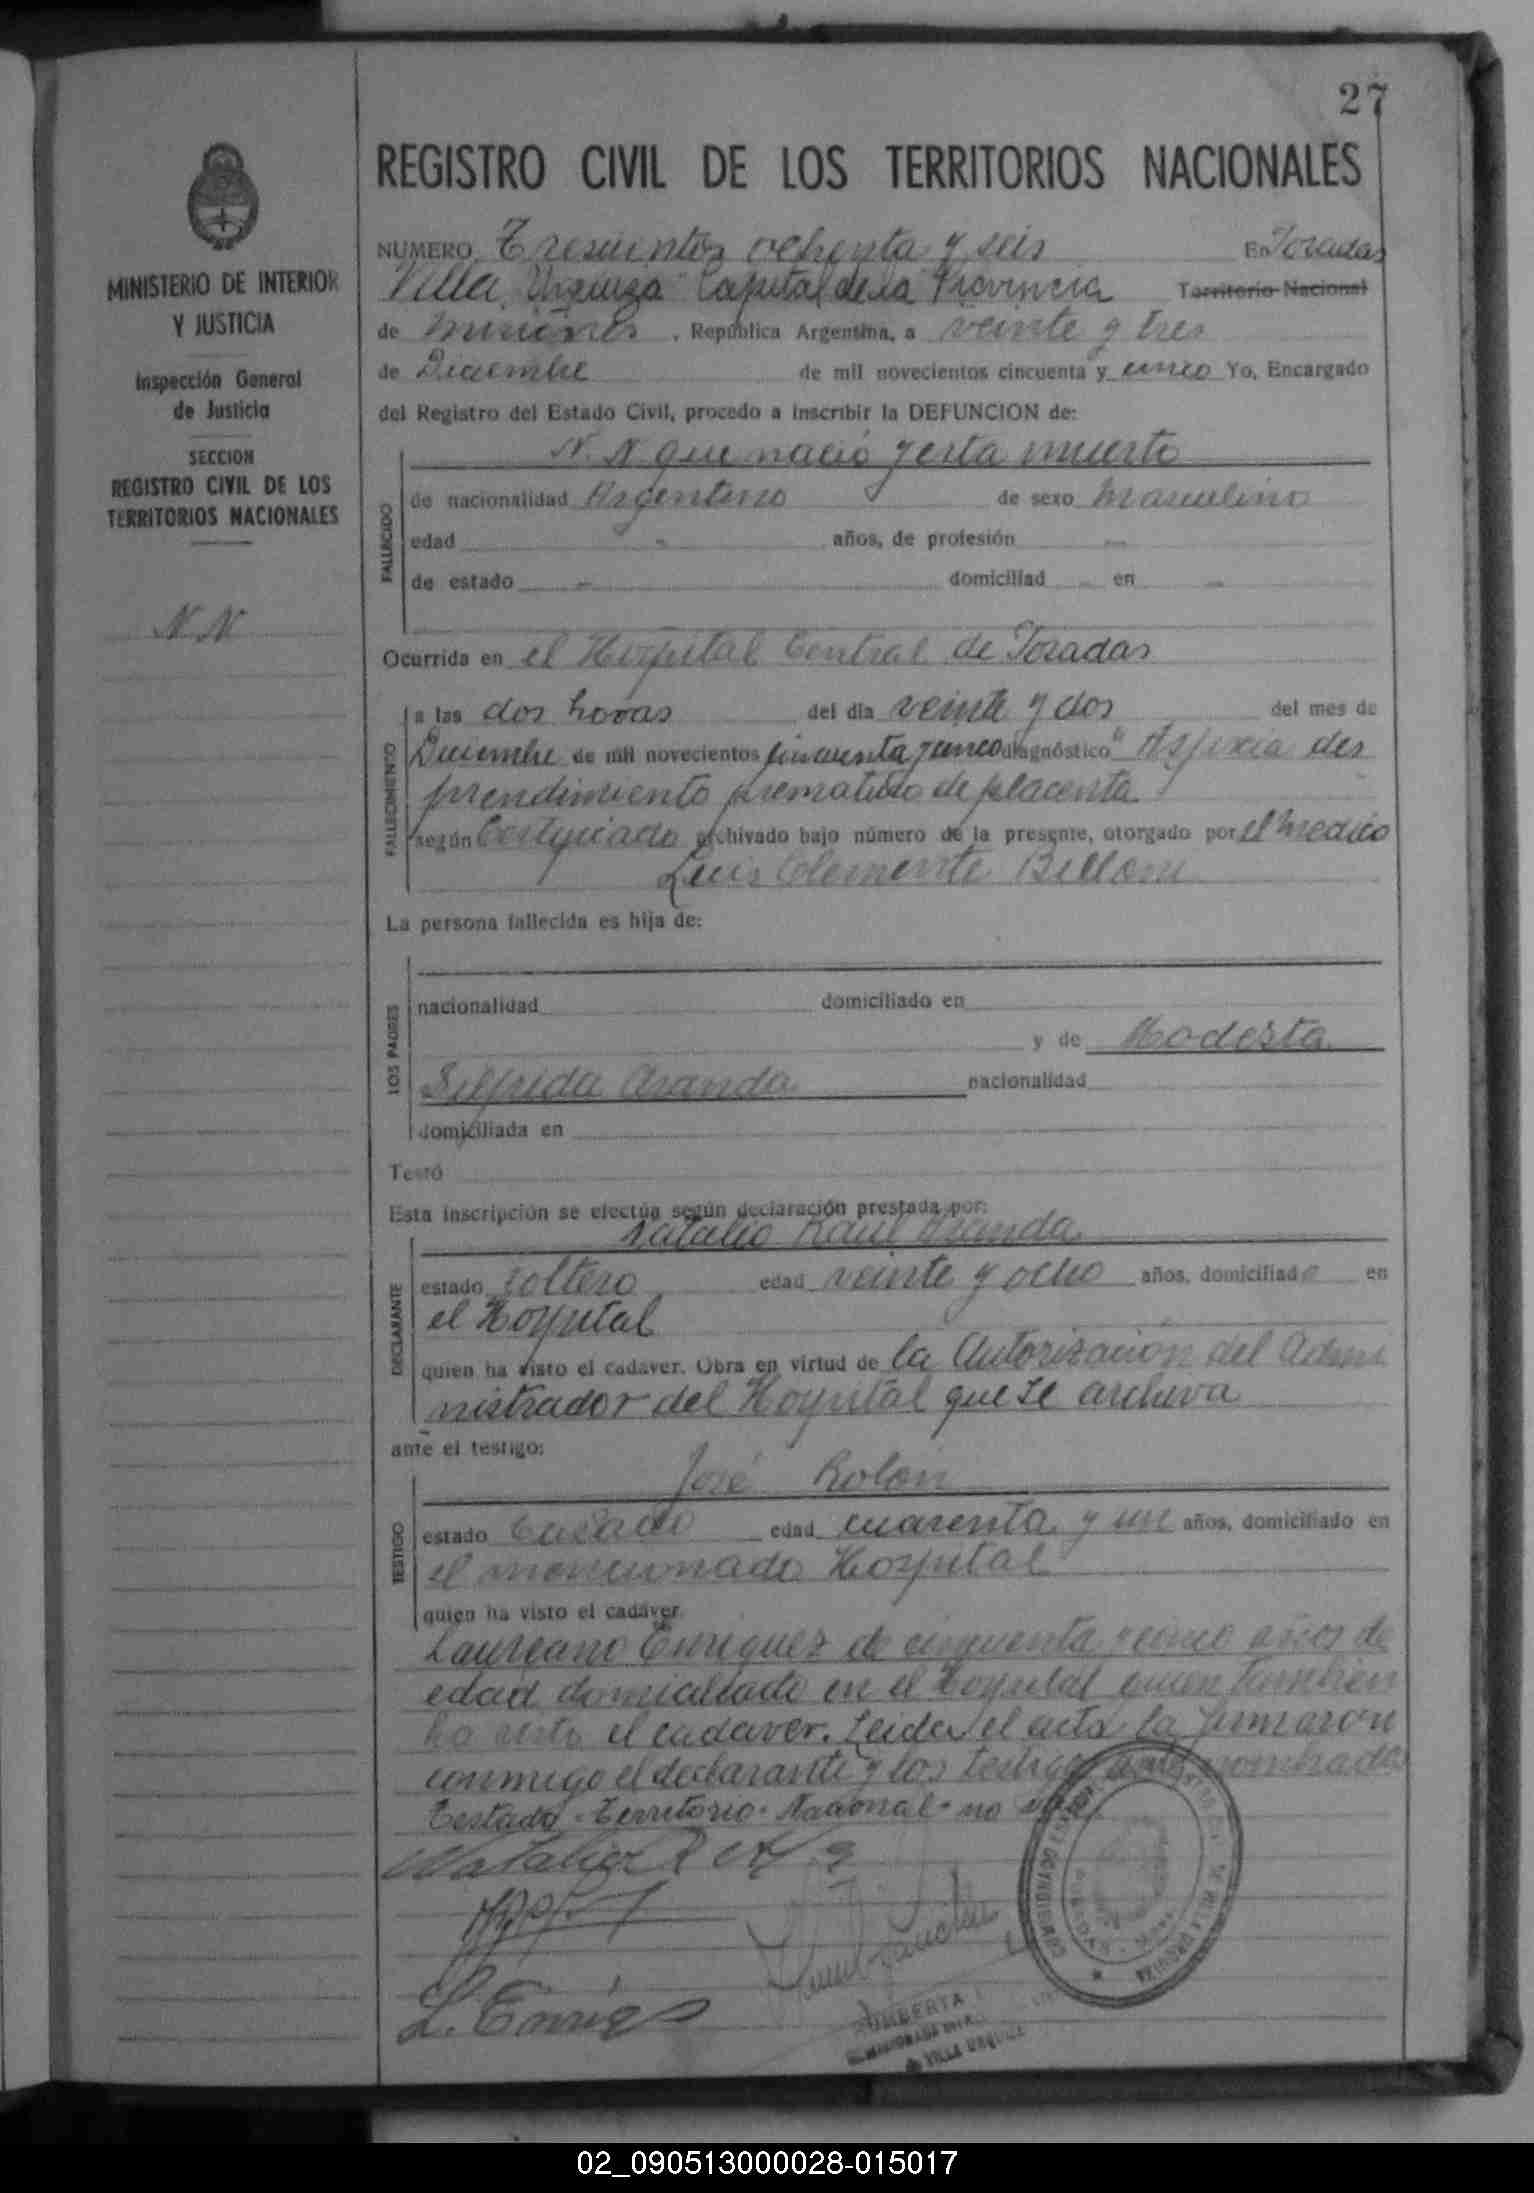 27
REGISTRO CIVIL DE LOS TERRITORIOS NACIONALES
MINISTERIO DE INTERIOR
Y JUSTICIA
Inspección General
de Justicia
SECCION
REGISTRO CIVIL DE LOS
TERRITORIOS NACIONALES
N N
NUMERO Trescientos ochenta y seis En Posadas
Villa Urquiza Capital de la Provincia Territorio Nacional
de Misiones, República Argentina, a veinte y tres
de Diciembre de mil novecientos cincuenta y cinco Yo, Encargado
del Registro del Estado Civil, procedo a inscribir la DEFUNCION de:
N. N que nació y esta muerto
FALLECIDO
de nacionalidad Argentino de sexo Masculino
edad - años, de profesión -
de estado - domiciliad - en -
Ocurrida en el Hospital Central de Posadas
FALLECIMIENTO
a las dos horas del día veinte y dos del mes de
Diciembre de mil novecientos cincuenta y cinco diagnóstico "Asfixia des
prendimiento prematuro de placenta
según Certificado archivado bajo número de la presente, otorgado por el Medico
Luis Clemente Billoni
La persona fallecida es hija de:
LOS PADRES
nacionalidad domiciliado en
y de Modesta
Silfrida Aranda nacionalidad
domiciliada en
Testó
Esta inscripción se efectúa según declaración prestada por:
Natalio Raul Aranda
DECLARANTE
estado soltero edad veinte y ocho años, domiciliado en
el Hospital
quien ha visto el cadaver. Obra en virtud de la Autorización del Admi
nistrador del Hospital que se archiva
ante el testigo:
José Rolon
TESTIGO
estado Casado edad cuarenta y un años, domiciliado en
el mencionado Hospital
quien ha visto el cadáver.
Laureano Enriquez de cincuenta y cinco años de
edad domiciliado en el Hospital quien tambien
ha visto el cadaver. Leida el acta la firmaron
conmigo el declarante y los testigos antes nombrados
Testado - Territorio - Nacional - no vale
L. Enriqz
VILLA URQUIZA
02_090513000028-015017